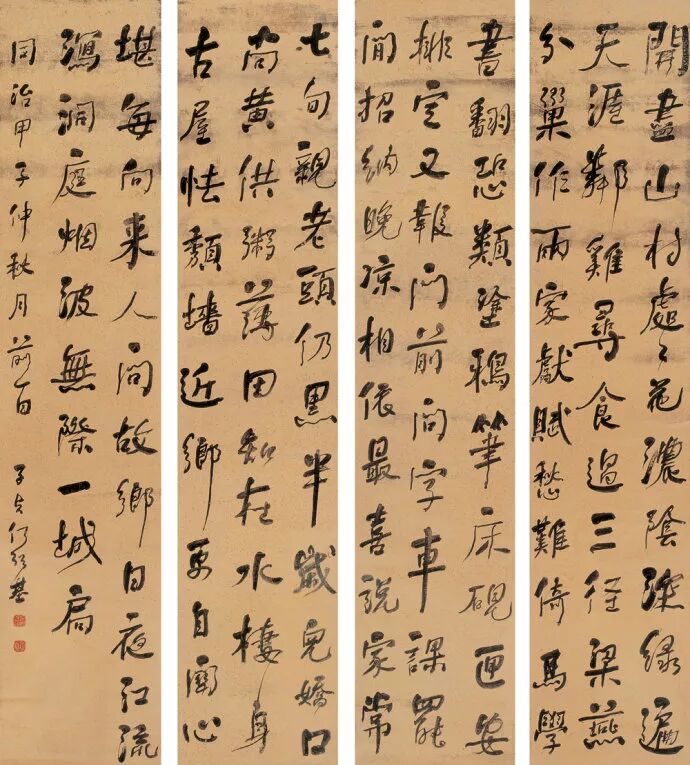 開盡山村處〻花濃陰深綠遍
天涯鄰雞尋食過三徑梁燕
分巢作兩家獻賦愁難倚馬學
書翻恐類塗鴉筆床硯匣安
排定又報門前問字車課罷
閒招納晚涼相依最喜說家常
七旬親老頭仍黑半歲兒嬌口
尚黃供粥薄田知在水棲身
古屋怯頹墻近鄉更自關心
堪每向來人問故鄉日夜江流
瀉洞庭烟波無際一城扃
同治甲子仲秋月前一日 子貞何紹基